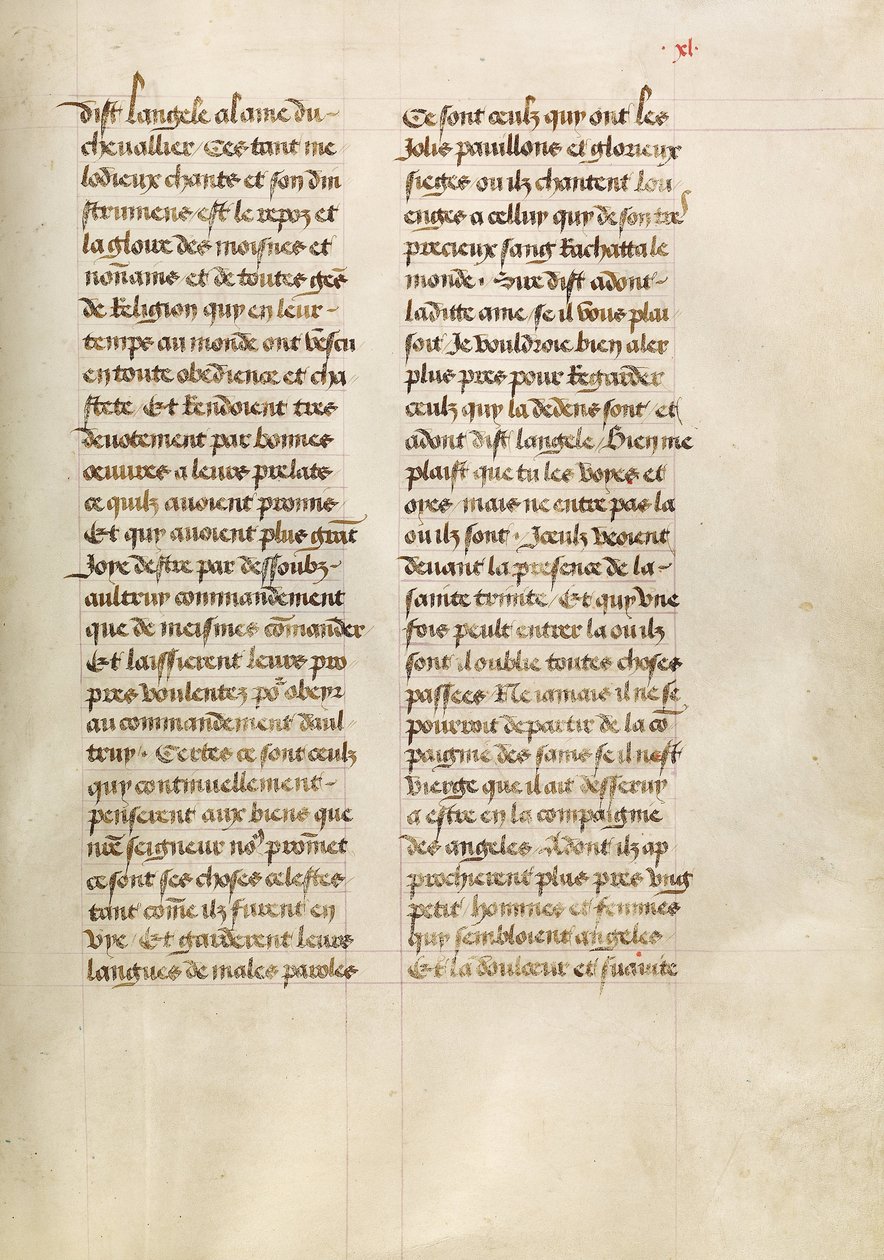 ·xl·
dist langele a lame du-
cheuallier / Ces tant me
lodieux chants et son din
strumens / est le repoz et
la gloire des moisnes et
non̄ains et de toutes ge᷒s
de Religion quy en leur-
temps au monde ont vescu
en toute obedience et cha
stete / Et Rendoient tres
deuotement par bonnes
oeuures a leurs prelats
ce quilz auoient promis
Et quy auoient plus grāt
Joye destre par dessoubz-
aultruy commandement
que de meismes cōmander
Et laissierent leurs pro
pres voulentez po᷑ obeyr
au commandement daul
truy · Certes ce sont ceulz
quy continuellement-
penserent aux biens que
nr̄e seigneur noꝰ promet
ce sont ses choses celestes
tant com̄e ilz furent en
vye / Et garderent leurs
langues de males paroles
Ce sont ceulz quy ont les
Jolis pauillons et glorieux
sieges / ou ilz chantent lou
enges a celluy quy de son tres
precieux sang Rachatta le
monde · Sire dist adont-
laditte ame / se il vous plai
soit / Je vouldroie bien aler
plus pres pour Regarder
ceulz quy la dedens sont / et
adont dist langele / Bien me
plaist que tu les voyes et
oyes / mais ne entre pas la
ou ilz sont · Jceulz veoient
deuant la presence de la-
sainte trinite / Et quy vne
fois peult entrer la ou ilz
sont il oublie toutes choses
passees / Ne iamais il ne se
pourroit departir de la cō
paignie des sains se il nest
vierge que il ait desseruy
a estre en la compaignie
des angeles / Adont ilz ap
prochierent plus pres vng
petit / hommes et femmes
quy sembloient angeles
Et la doulceur et suauite